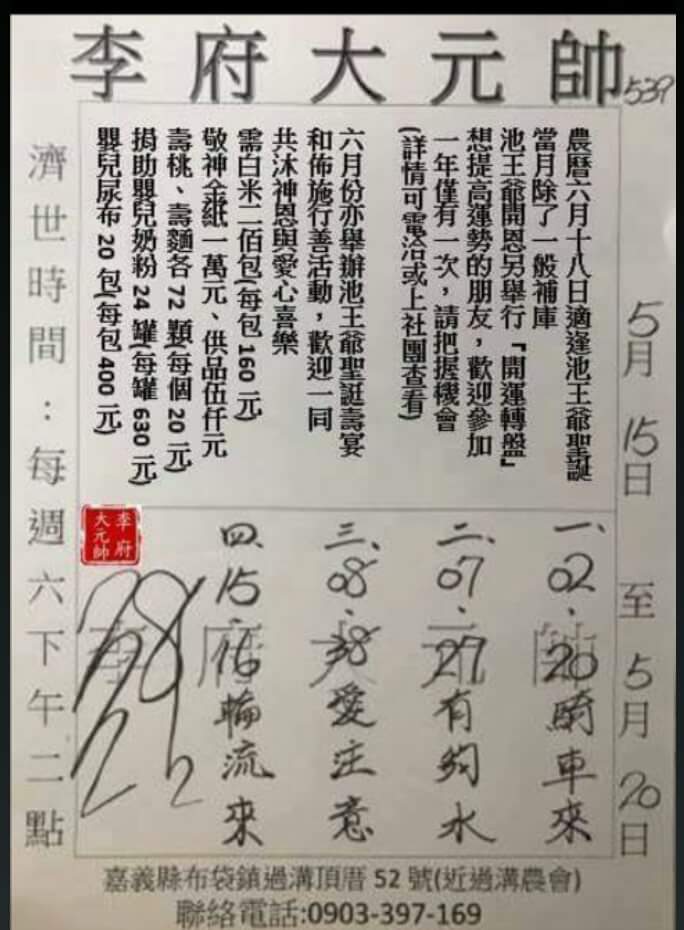 李府大元帥
539
農曆六月十八日適逢池王爺聖誕
當月除了一般補庫
池王爺開恩另舉行「開運轉盤」
想提高運勢的朋友，歡迎參加
一年僅有一次，請把握機會
(詳情可電洽或上社團查看)
六月份亦舉辦池王爺聖誕壽宴
和佈施行善活動，歡迎一同
共沐神恩與愛心喜樂
需白米二佰包(每包160元)
敬神金紙一萬元、供品伍仟元
壽桃、壽麵各72顆(每個20元)
捐助嬰兒奶粉24罐(每罐630元)
嬰兒尿布20包(每包400元)
5月15日至5月20日
一、02.20騎車來
二、07.27有夠水
三、08.38愛注意
四、15.16輪流來
李府
大元帥
李府大元帥
濟世時間：每週六下午二點
嘉義縣布袋鎮過溝頂厝52號(近過溝農會)
聯絡電話:0903-397-169